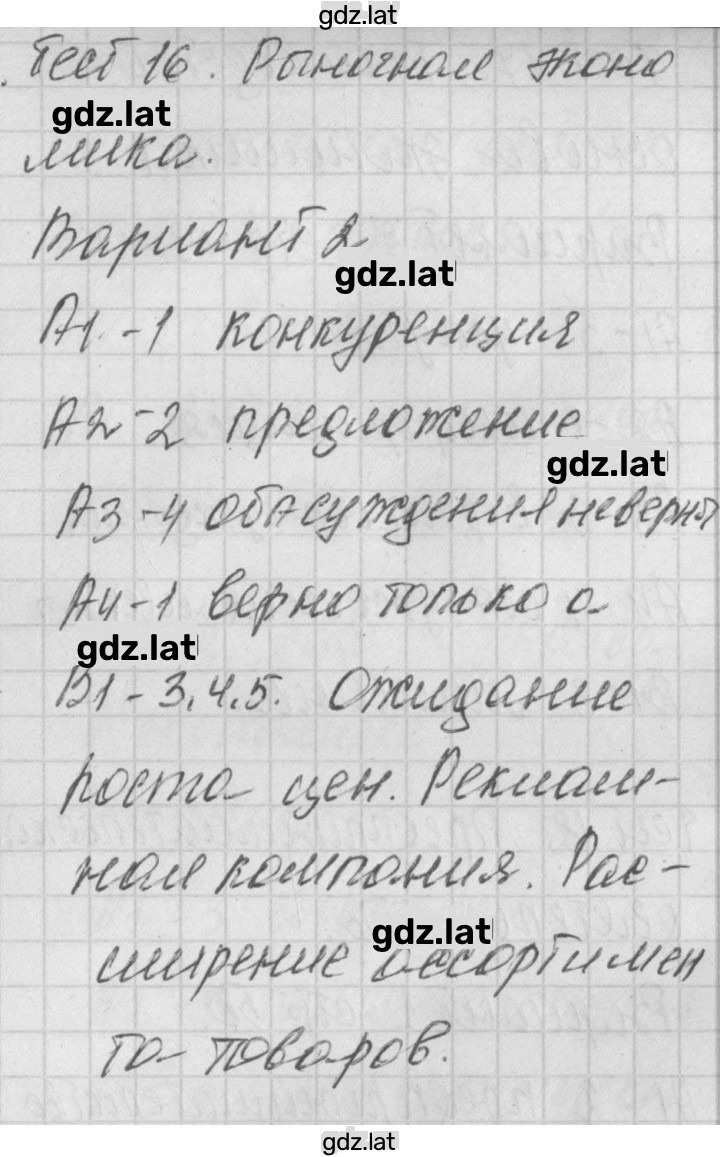 gdz.lat
Тест 16. Рыночная эконо
gdz.lat
мика.
Вариант 2
gdz.lat
А1.-1 конкуренция
А2-2 предложение
gdz.lat
А3-4 оба суждения неверны
А4-1 верно только а
gdz.lat
В1-3,4,5. Ожидание
роста цен. Реклам-
ная компания. Рас-
gdz.lat
ширение ассортимен
та товаров.
gdz.lat